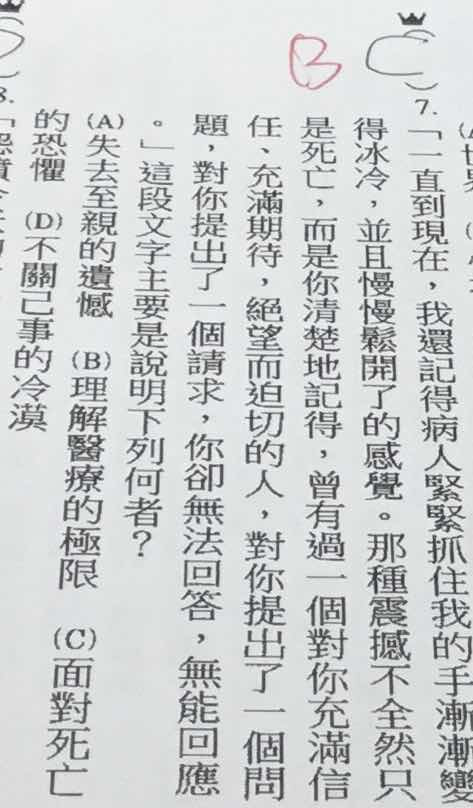 B
C
7.
「一直到現在，我還記得病人緊緊抓住我的手漸漸變
得冰冷，並且慢慢鬆開了的感覺。那種震撼不全然只
是死亡，而是你清楚地記得，曾有過一個對你充滿信
任、充滿期待，絕望而迫切的人，對你提出了一個問
題，對你提出了一個請求，你卻無法回答，無能回應
。」這段文字主要是說明下列何者？
(A)失去至親的遺憾 (B)理解醫療的極限 (C)面對死亡
的恐懼 (D)不關己事的冷漠
8.